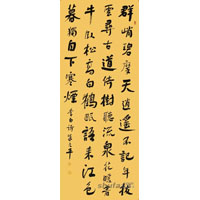 群峭碧摩天逍遥不記年撥
雲尋古道倚樹聽流泉花暖青
牛臥松高白鶴眠語来江色
暮獨自下寒煙 李白詩